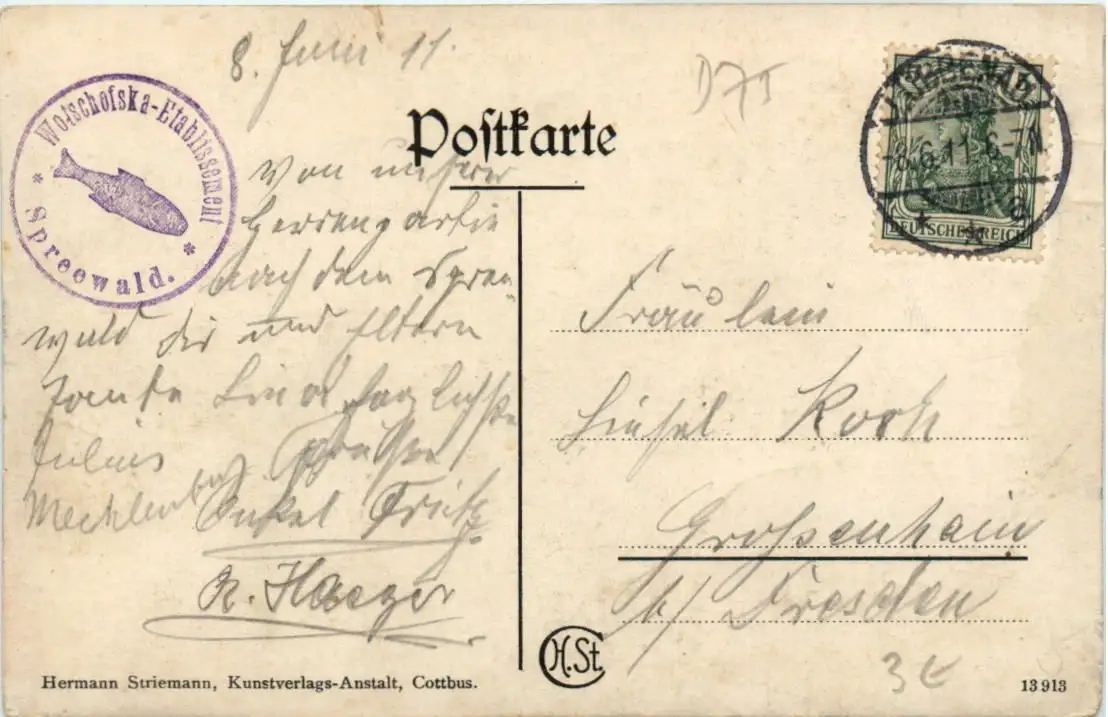 8. Juni 11.
D75
Wotschofska-Etablissement
* Spreewald. *
Postkarte
LÜBBENAU
-8.6.11.6-7N
* a
DEUTSCHES REICH
Von unserer
Herrenpartie
nach dem Spree-
wald dir und Eltern
Tante herzlichste
Grüsse
Julius
Mecklenburg
Onkel Fritz
R. Haeger
Fräulein
Liesel Koch
Grossenhain
b/ Dresden
H.St.
3€
Hermann Striemann, Kunstverlags-Anstalt, Cottbus.
13913